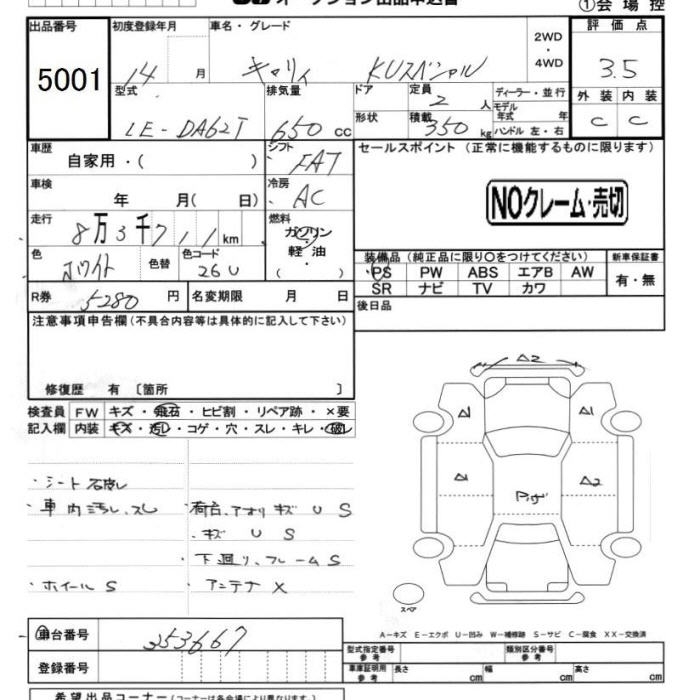 オークション出品申込書 ①会場控
出品番号 初度登録年月 車名・グレード 2WD・4WD 評価点
5001 14 月 キャリィ KUスペシャル 3.5
型式 排気量 ドア 定員 2 人 ディーラー・並行 外装 内装
LE-DA62T 650 cc 形状 積載 350 kg モデル年式 年 ハンドル 左・右 C C
車歴 自家用・( ) シフト FAT セールスポイント (正常に機能するものに限ります)
車検 年 月( 日) 冷房 AC NOクレーム・売切
走行 8万3千7 1 1 km 燃料 ガソリン 軽油 ( )
色 ホワイト 色替 色コード 26U
装備品 (純正品に限り〇をつけてください) 新車保証書
PS PW ABS エアB AW 有・無
SR ナビ TV カワ
R券 5280 円 名変期限 月 日 後日品
注意事項申告欄(不具合内容等は具体的に記入して下さい)
修復歴 有 〔箇所 〕
検査員 FW キズ・飛石・ヒビ割・リペア跡・×要
記入欄 内装 キズ・汚れ・コゲ・穴・スレ・キレ・破レ
A2
A1 A1
A1 A2
・車内汚れ、スレ ・荷台、アオリ キズ U S
・キズ U S
・下廻り、フレーム S
・ホイール S ・アンテナ X
スペア
A-キズ E-エクボ U-凹み W-補修跡 S-サビ C-腐食 XX-交換済
車台番号 253667
登録番号
型式指定番号 参考 類別区分番号 参考
車庫証明用 参考 長さ cm 幅 cm 高さ cm
希望出品コーナー(コーナーは各会場により異なります)